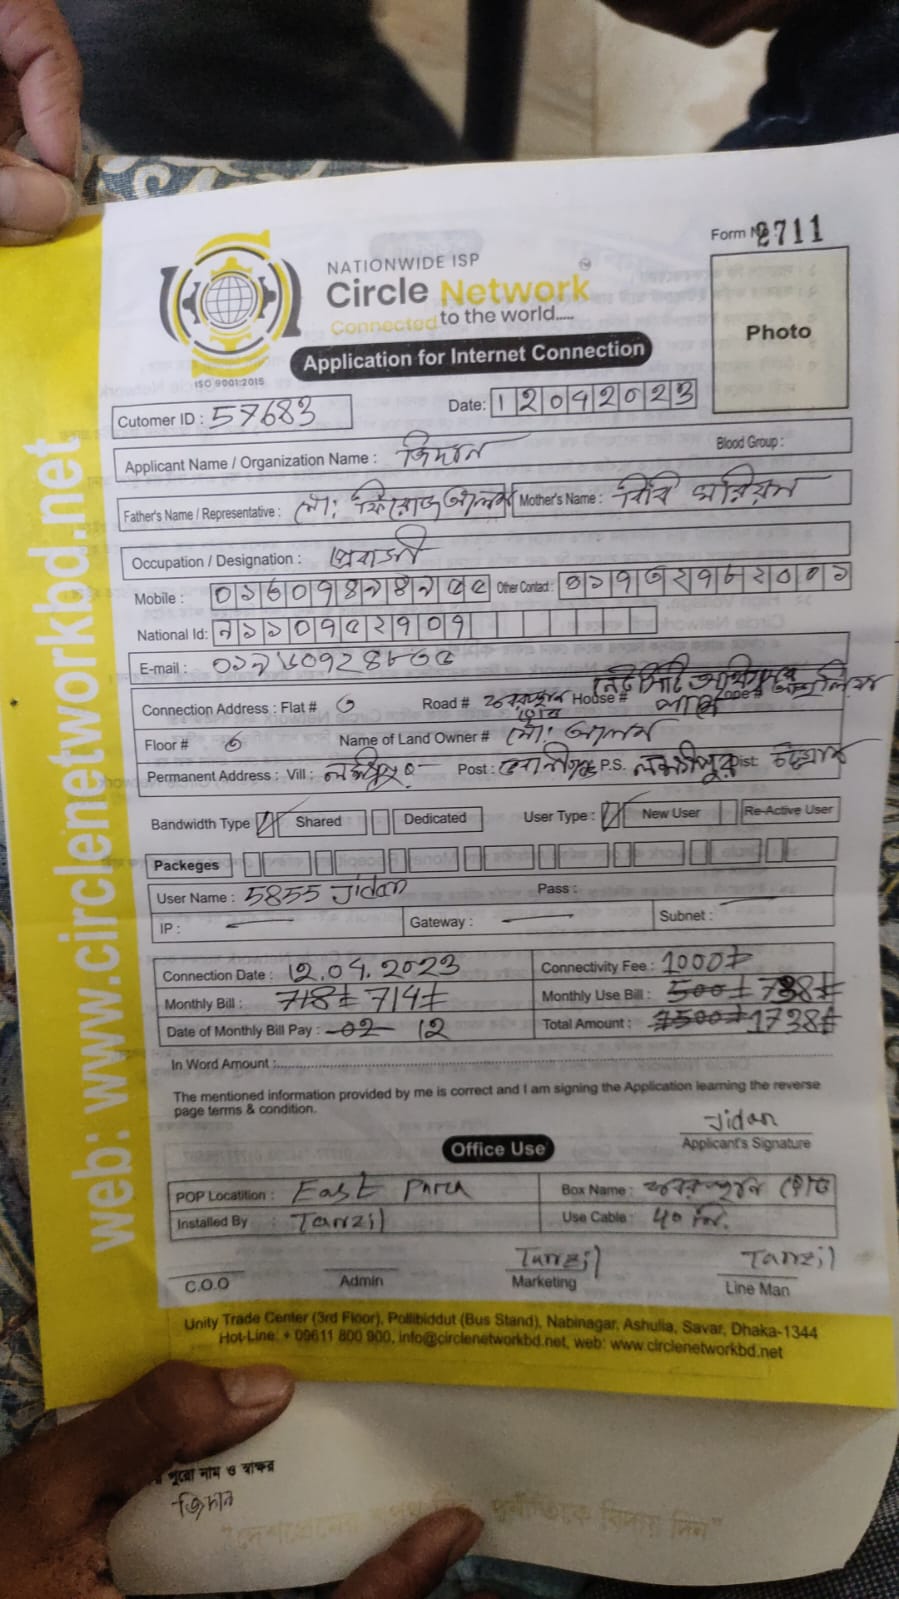 Form No 2711
NATIONWIDE ISP
Circle Network
Connected to the world.....
Application for Internet Connection
Photo
ISO 9001:2015
Cutomer ID : 57683 Date: 12042023
Applicant Name / Organization Name : জিদান Blood Group :
Father's Name / Representative : মো: ফিরোজ আলম Mother's Name : বিবি মরিয়ম
Occupation / Designation : প্রবাসী
Mobile : Other Contact :
National Id:
E-mail :
Connection Address : Flat # Road # House #
Floor # Name of Land Owner # মো: আলম
Permanent Address : Vill : Post : P.S. লক্ষীপুর Dist:
Bandwidth Type Shared Dedicated User Type : New User Re-Active User
Packeges
User Name : 5855 Jidan Pass :
IP : — Gateway : — Subnet : —
Connection Date : 12.04.2023 Connectivity Fee : 1000
Monthly Bill : 718 714 Monthly Use Bill : 500 738
Date of Monthly Bill Pay : 02 12 Total Amount : 1500 1738
In Word Amount :
The mentioned information provided by me is correct and I am signing the Application learning the reverse
page terms & condition.
Jidan
Applicant's Signature
Office Use
POP Locatition : East Para Box Name :
Installed By : Tanzil Use Cable : ৪০ মি.
Tanzil Tanzil
C.O.O Admin Marketing Line Man
Unity Trade Center (3rd Floor), Pollibiddut (Bus Stand), Nabinagar, Ashulia, Savar, Dhaka-1344
Hot-Line: + 09611 800 900, info@circlenetworkbd.net, web: www.circlenetworkbd.net
web: www.circlenetworkbd.net
পুরো নাম ও স্বাক্ষর
জিদান